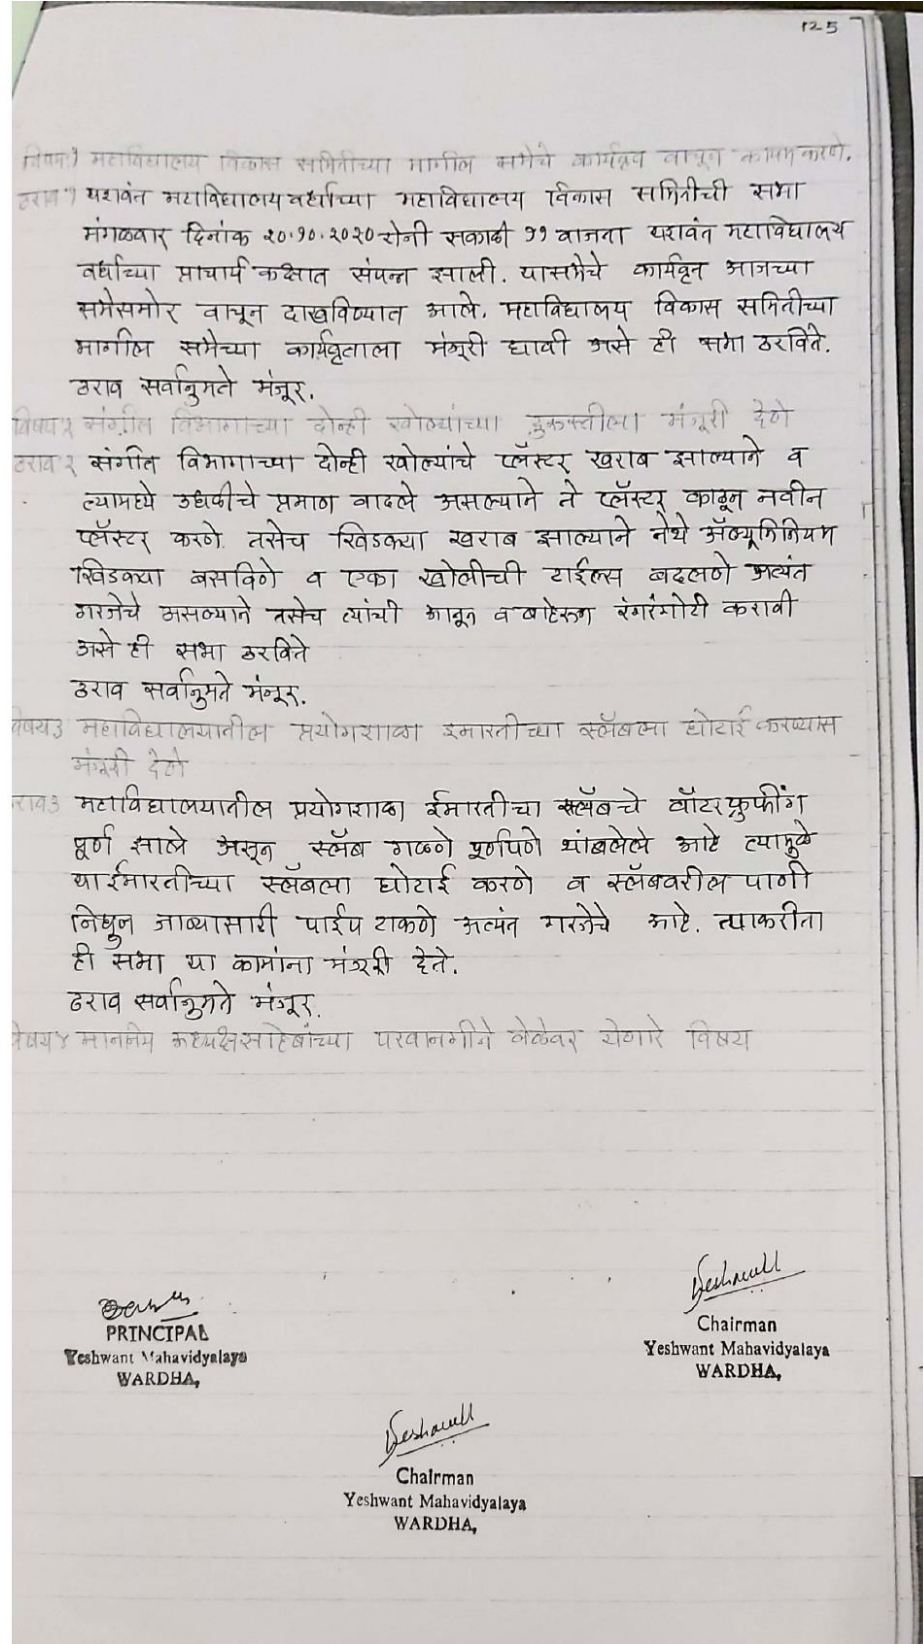 125
विषय१ महाविद्यालय विकास समितीच्या मागील सभेचे कार्यवृत्त वाचून कायम करणे.
ठराव१ यशवंत महाविद्यालय वर्धाच्या महाविद्यालय विकास समितीची सभा
मंगळवार दिनांक २०.१०.२०२० रोजी सकाळी ११ वाजता यशवंत महाविद्यालय
वर्धाच्या प्राचार्य कक्षात संपन्न झाली. यासभेचे कार्यवृत्त आजच्या
सभेसमोर वाचून दाखविण्यात आले. महाविद्यालय विकास समितीच्या
मागील सभेच्या कार्यवृत्ताला मंजूरी द्यावी असे ही सभा ठरविते.
ठराव सर्वानुमते मंजूर.
विषय२ संगीत विभागाच्या दोन्ही खोल्यांच्या दुरुस्तीला मंजूरी देणे
ठराव२ संगीत विभागाच्या दोन्ही खोल्यांचे प्लॅस्टर खराब झाल्याने व
त्यामध्ये उधळीचे प्रमाण वाढले असल्याने ते प्लॅस्टर काढून नवीन
प्लॅस्टर करणे तसेच खिडक्या खराब झाल्याने तेथे ॲल्यूमिनियम
खिडक्या बसविणे व एका खोलीची टाईल्स बदलणे अत्यंत
गरजेचे असल्याने तसेच त्यांची आतून व बाहेरून रंगरंगोटी करावी
असे ही सभा ठरविते
ठराव सर्वानुमते मंजूर.
विषय३ महाविद्यालयातील प्रयोगशाळा इमारतीच्या स्लॅबला घोटाई करण्यास
मंजूरी देणे
ठराव३ महाविद्यालयातील प्रयोगशाळा ईमारतीचा स्लॅबचे वॉटरप्रुफींग
पूर्ण झाले असून स्लॅब गळणे पूर्णपणे थांबलेले आहे त्यामुळे
या ईमारतीच्या स्लॅबला घोटाई करणे व स्लॅबवरील पाणी
निघून जाव्यासाठी पाईप टाकणे अत्यंत गरजेचे आहे. त्याकरीता
ही सभा या कामांना मंजूरी देते.
ठराव सर्वानुमते मंजूर.
विषय४ माननीय अध्यक्षसाहेबांच्या परवानगीने वेळेवर येणारे विषय
Chairman
Yeshwant Mahavidyalaya
WARDHA,
PRINCIPAL
Yeshwant Mahavidyalaya
WARDHA,
Chairman
Yeshwant Mahavidyalaya
WARDHA,